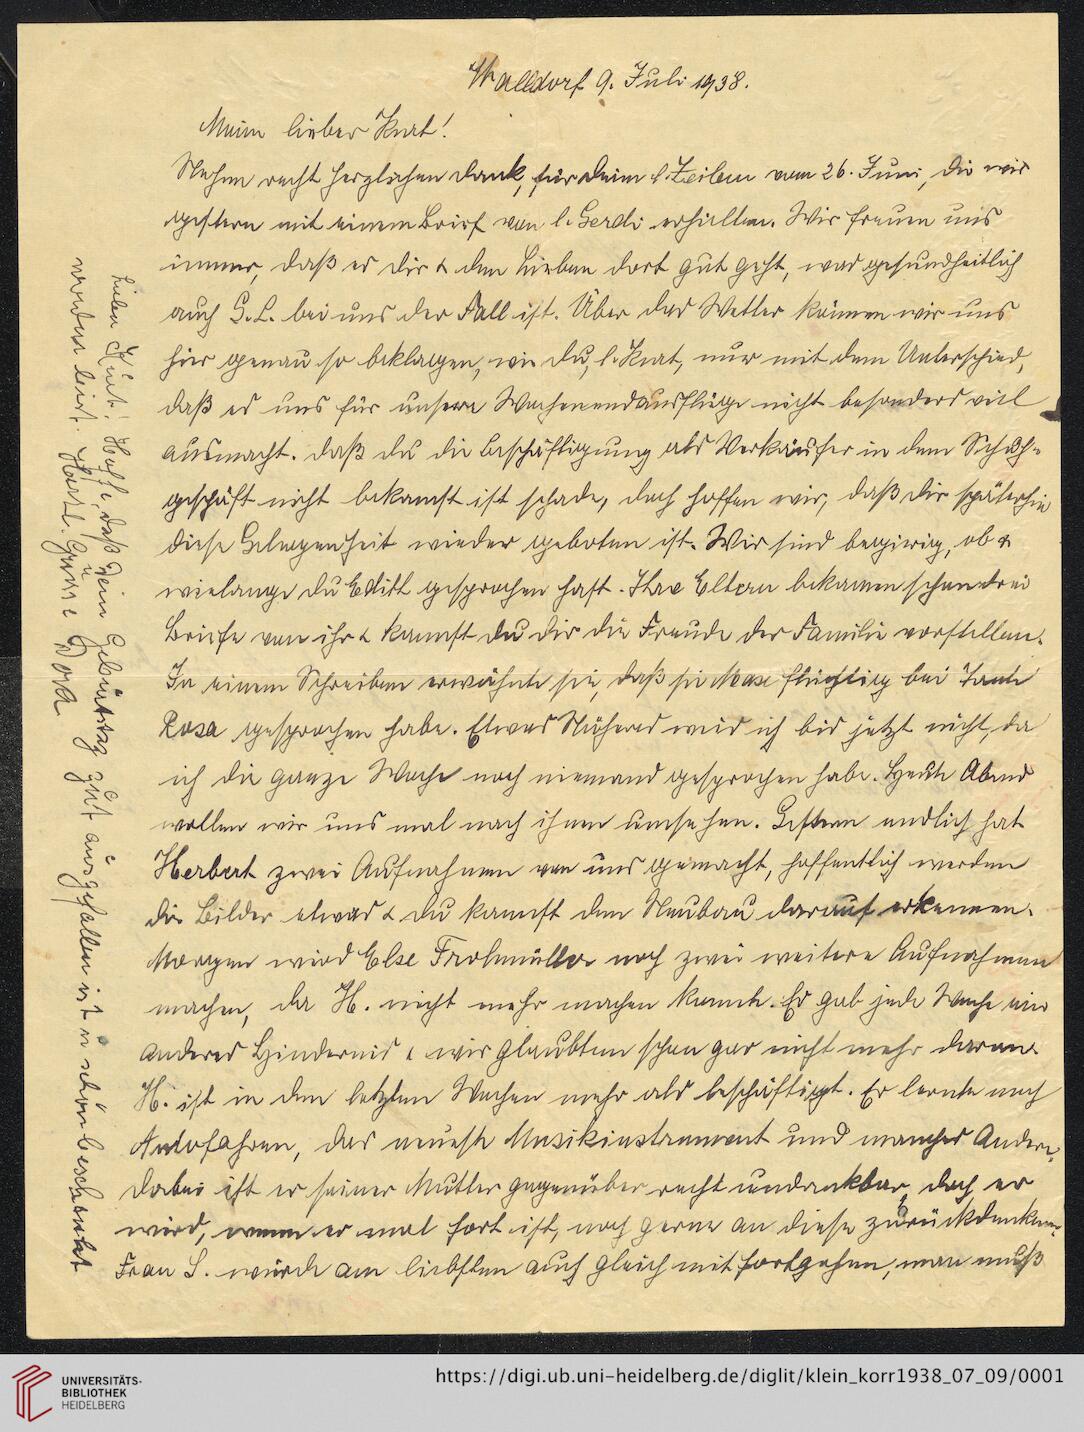 Walldorf 9. Juli 1938.
Mein lieber Kurt!
Nehme recht herzlichen Dank, für Deine l. Zeilen vom 26. Juni, die wir
gestern mit einem Brief von l. Gerdi erhielten. Wir freuen uns
immer, daß es Dir & den Lieben dort gut geht, was gesundheitlich
auch G. L. bei uns der Fall ist. Über das Wetter können wir uns
hier genau so beklagen, wie Du, l. Kurt, nur mit dem Unterschied,
daß es uns für unsere Wochenendausflüge nicht besonders viel
ausmacht. Daß Du die Beschäftigung als Verkäufer in dem Schuh-
geschäft nicht bekamst ist schade, doch hoffen wir, daß Dir späterhin
diese Gelegenheit wieder geboten ist. Wir sind begierig, ob &
wielange Du Edith gesprochen hast. Ihre Eltern bekamen schon drei
Briefe von ihr & kannst Du Dir die Freude der Familie vorstellen.
In einem Schreiben erwähnte sie, daß sie Max flüchtig bei Tante
Rosa gesprochen habe. Etwas Näheres weis ich bis jetzt nicht, da
ich die ganze Woche noch niemand gesprochen habe. Heute Abend
wollen wir uns mal nach ihnen umsehen. Gestern endlich hat
Herbert zwei Aufnahmen von uns gemacht, hoffentlich werden
die Bilder etwas & Du kannst den Neubau darauf erkennen.
Morgen wird Else Frohmüller noch zwei weitere Aufnahmen
machen, da H. nicht mehr machen konnte. Es gab jede Woche ein
anderes Hindernis & wir glaubten schon gar nicht mehr daran.
H. ist in den letzten Wochen mehr als beschäftigt. Er lernte noch
Autofahren, das neueste Musikinstrument und manches Andere,
dabei ist er seiner Mutter gegenüber recht undankbar, doch er
wird, wenn er mal fort ist, noch gerne an diese zurückdenken.
Frau S. würde am liebsten auch gleich mit fortgehen, man muß
Lieber Kurt! Hoffe, daß Dein Geburtstag gut ausgefallen ist u. schön beschenkt
worden bist. Herzl. Grüsse Dora
UNIVERSITÄTS-
BIBLIOTHEK
HEIDELBERG
https://digi.ub.uni-heidelberg.de/diglit/klein_korr1938_07_09/0001